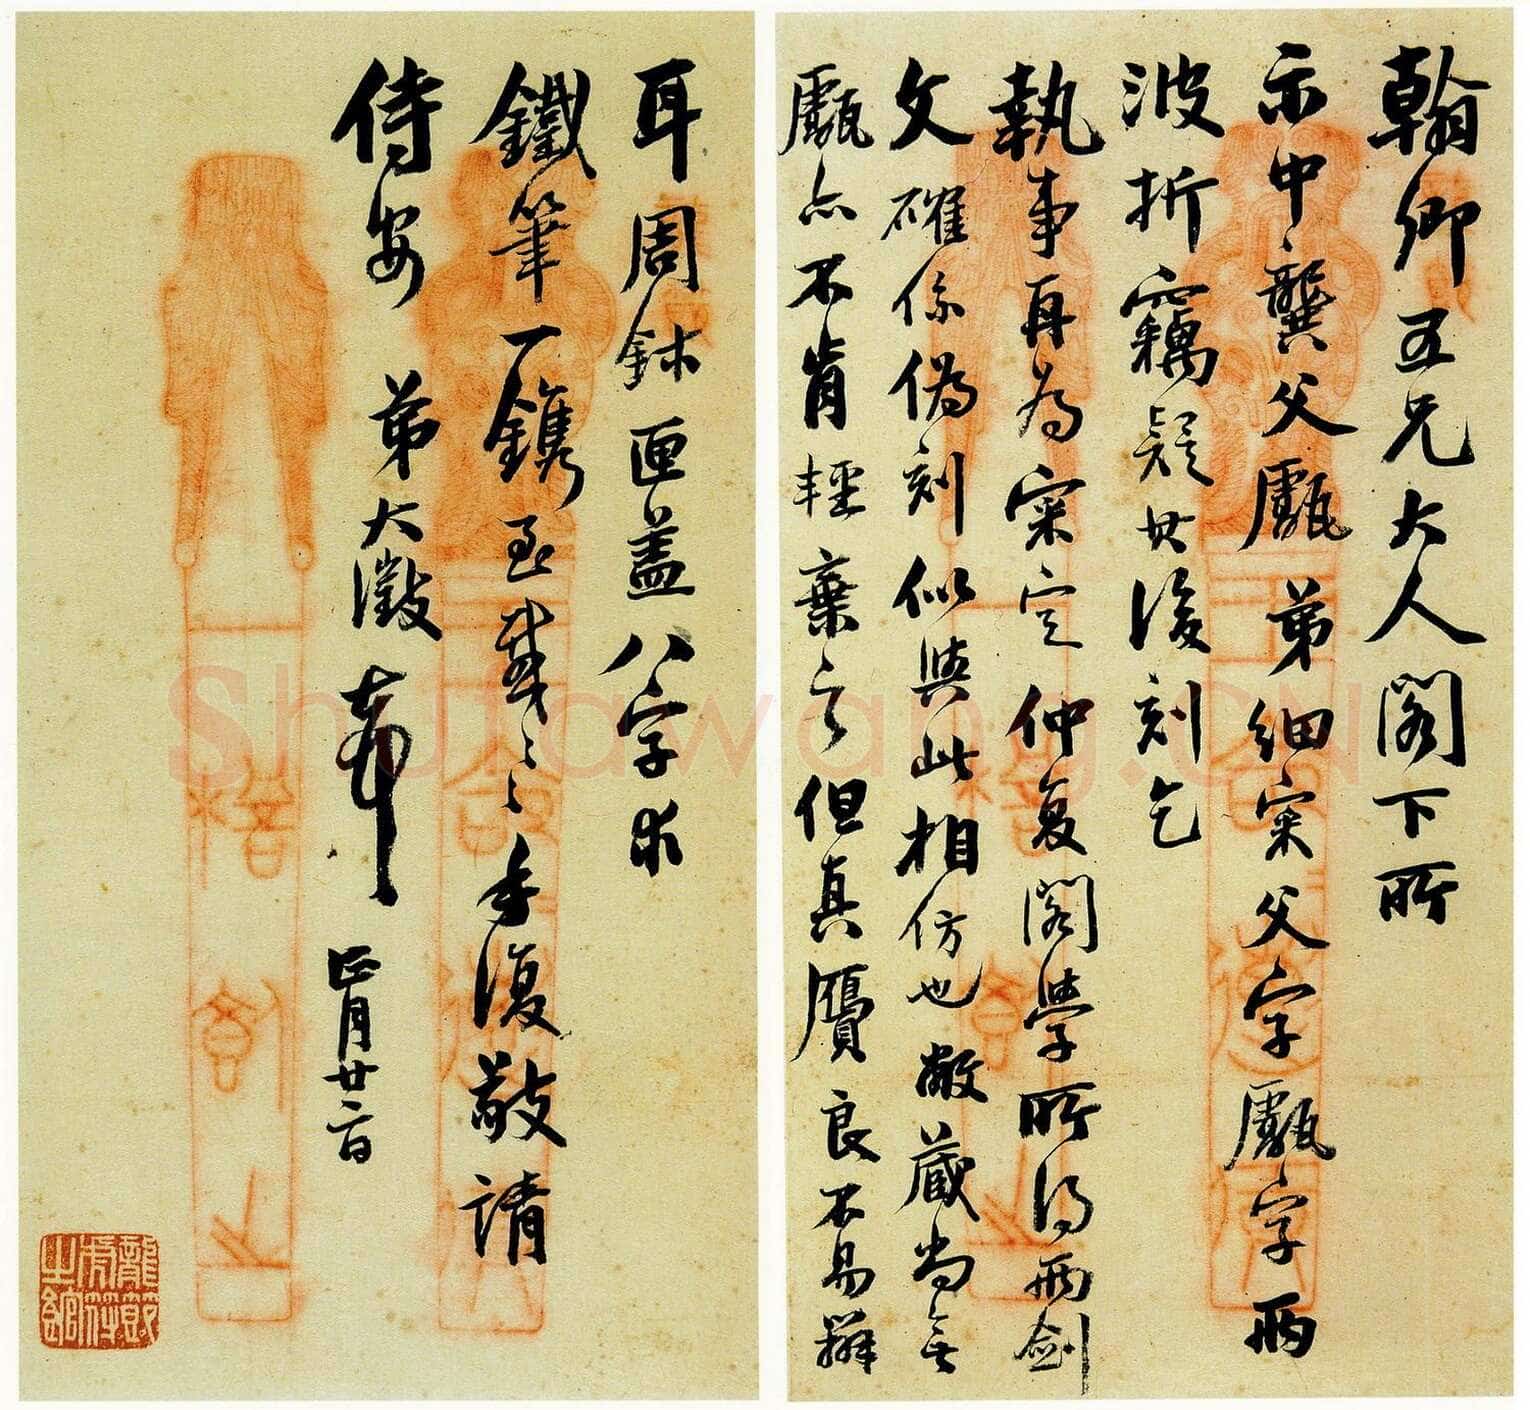 翰卿五兄大人閣下所
示中龔父甗弟細案父字甗字兩
波折竊疑其後刻乞
執事再為案定仲复閣學所得兩劍
文確係偽刻似與此相仿也敝藏尚無
甗亦不肯輕棄之但真贋良不易辨
耳周鉢匣蓋八字求
鐵筆一鐫至感感手復敬請
侍安 弟大澂頓首 正月廿二日
龍節
虎符
之館
Shufawang.CN